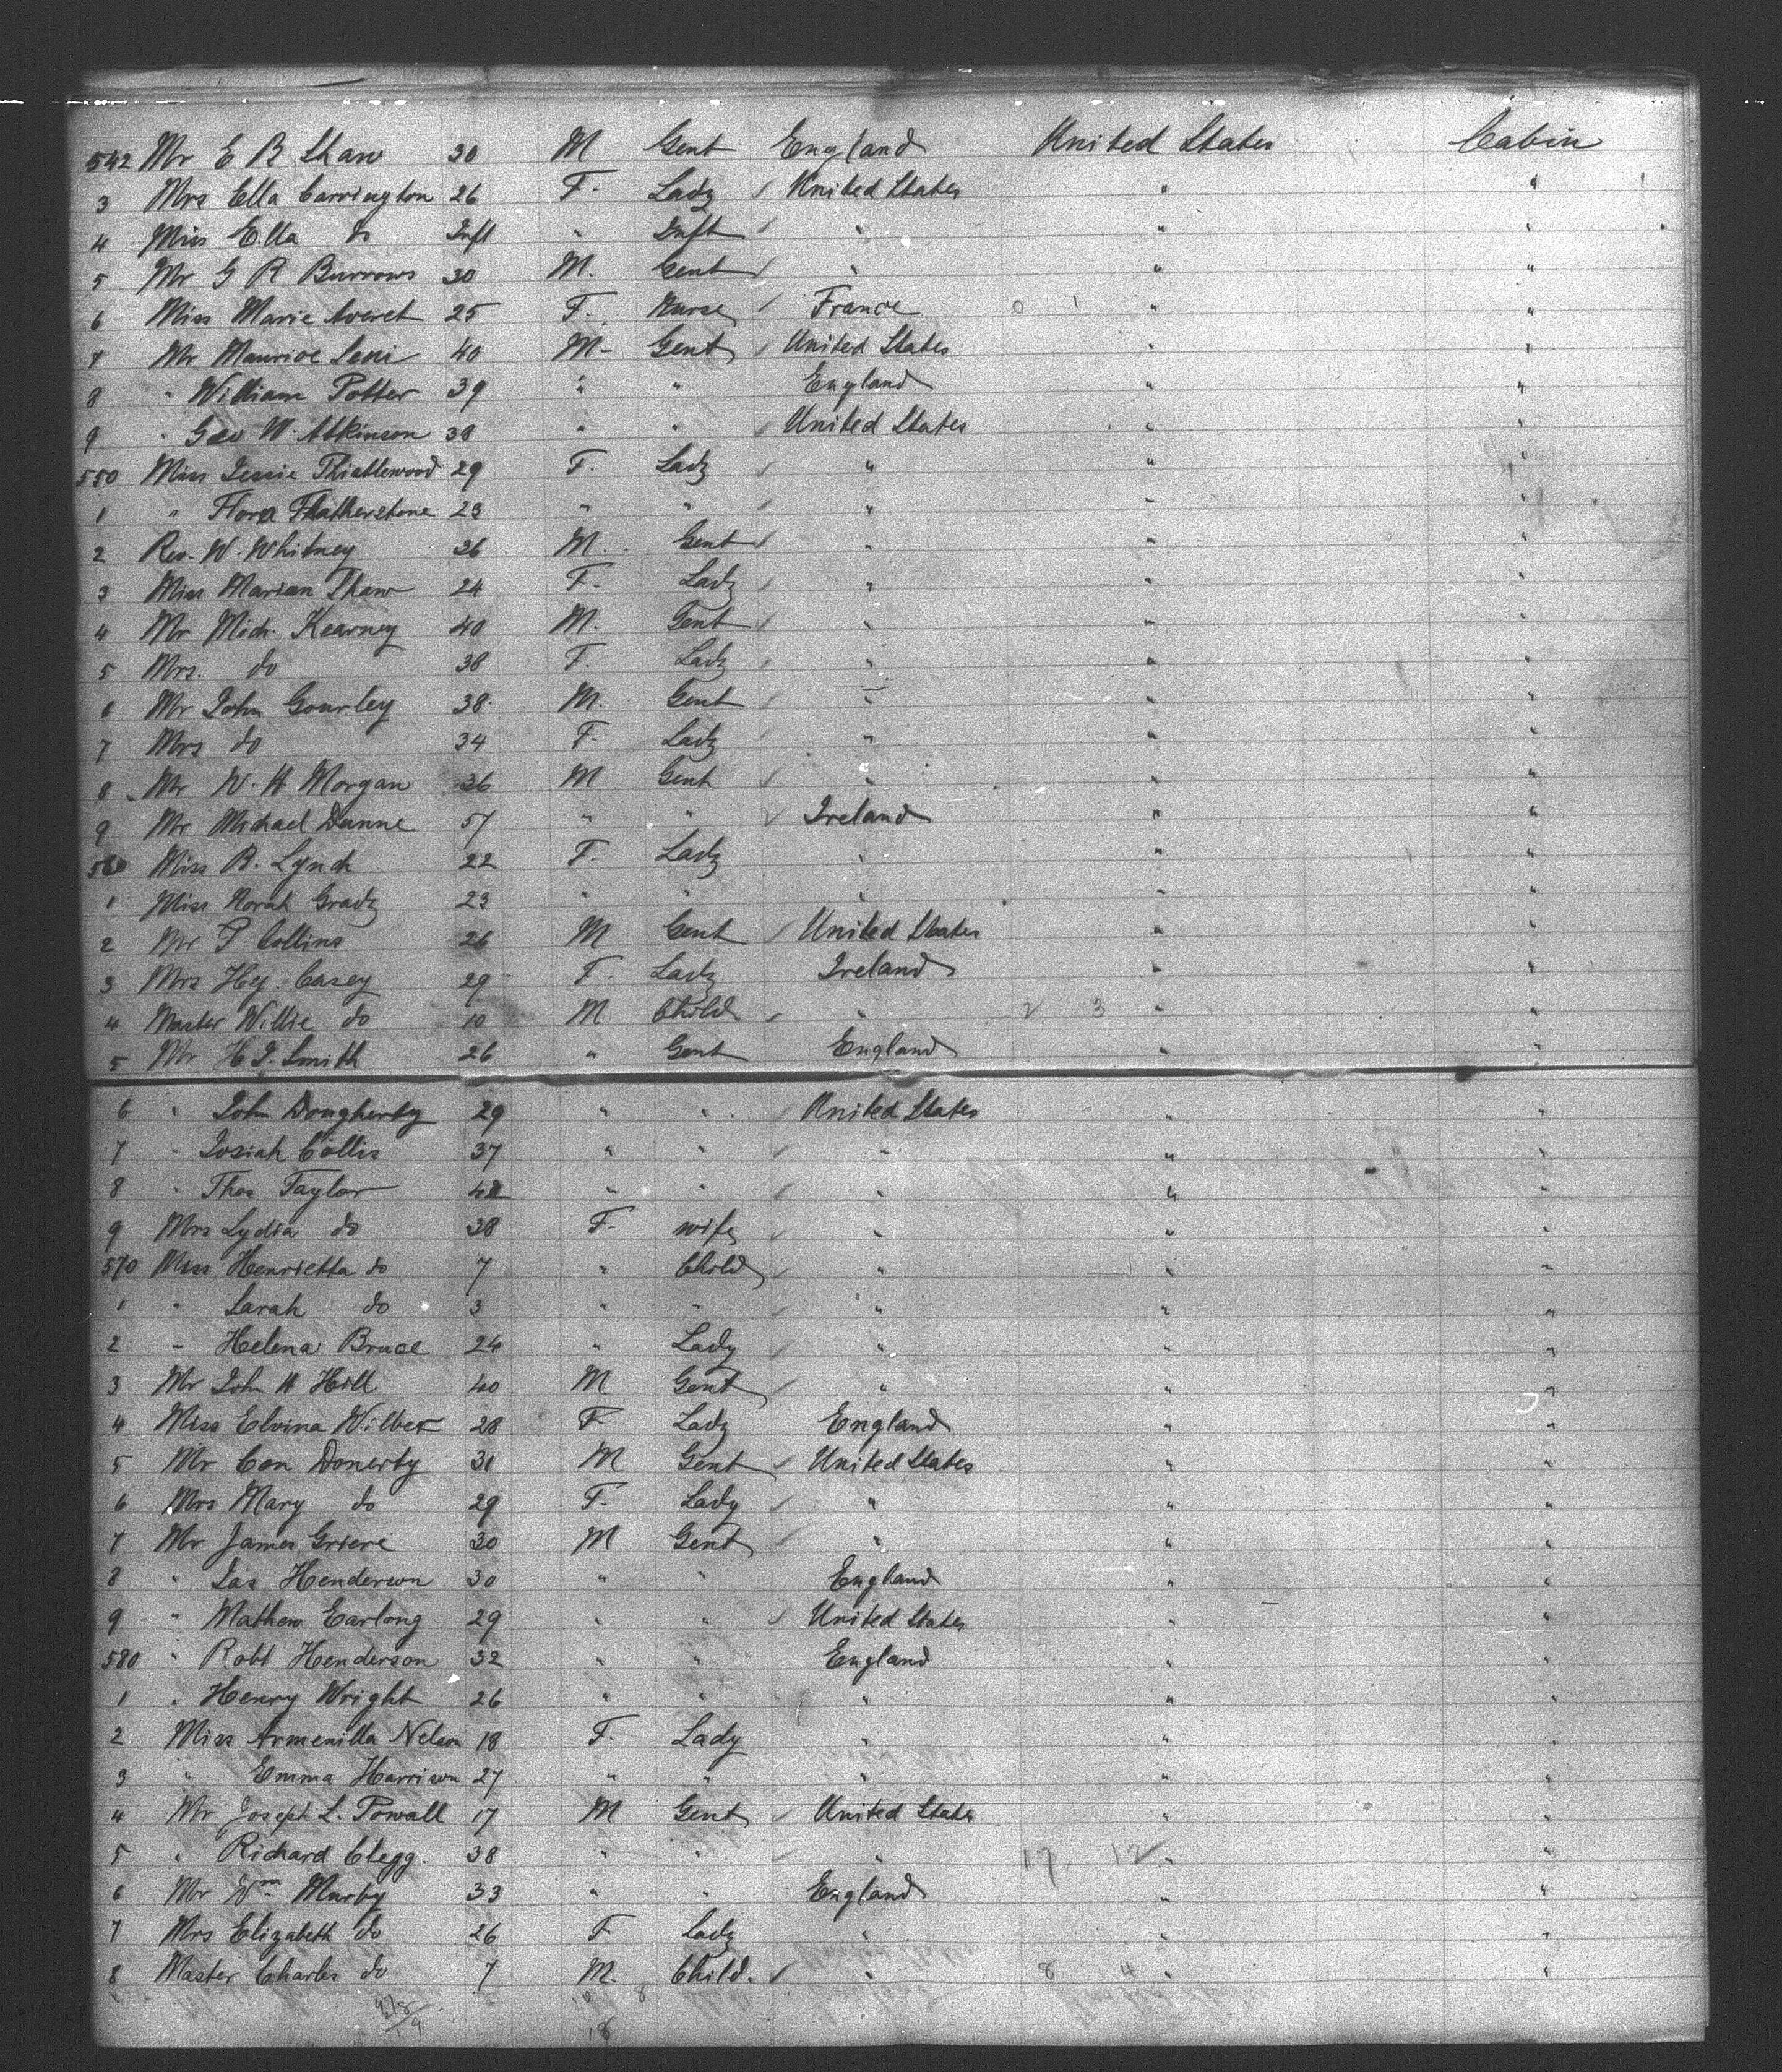 542 Mr E R Shaw 30 M Gent England United States Cabin
3 Mrs Ella Carrington 26 F. Lady United States " "
4 Miss Ella do Inft " Inft " " "
5 Mr G R Burrows 30 M. Gent " " "
6 Miss Marie Averet 25 F. Nurse France 0 1 " "
7 Mr Maurice Levi 40 M- Gent United States " "
8 " William Potter 39 " " England " "
9 " Geo W. Atkinson 38 " " United States " "
550 Miss Jessie Thistlewood 29 F. Lady " " "
1 " Flora Featherstone 23 " " " " "
2 Rev. W. Whitney 36 M. Gent " " "
3 Miss Marian Thaw 24 F. Lady " " "
4 Mr Mich. Kearney 40 M. Gent " " "
5 Mrs. do 38 F. Lady " " "
6 Mr John Gourley 38 M. Gent " " "
7 Mrs do 34 F. Lady " " "
8 Mr W. H Morgan 36 M Gent " " "
9 Mr Michael Dunne 57 " " Ireland " "
560 Miss B. Lynch 22 F. Lady " " "
1 Miss Norah Grady 23 " " " " "
2 Mr P Collins 26 M Gent United States " "
3 Mrs Hy. Casey 29 F. Lady Ireland " "
4 Master Willie do 10 M Child " 2 3 " "
5 Mr H J. Smith 26 " Gent England " "
6 " John Dougherty 29 " " United States " "
7 " Josiah Collis 37 " " " " "
8 " Thos Taylor 42 " " " " "
9 Mrs Lydia do 38 F. wife " " "
570 Miss Henrietta do 7 " Child " " "
1 " Sarah do 3 " " " " "
2 " Helena Bruce 24 " Lady " " "
3 Mr John H Hill 40 M Gent " " "
4 Miss Elvina Wilber 28 F. Lady England " "
5 Mr Con Donerty 31 M Gent United States " "
6 Mrs Mary do 29 F. Lady " " "
7 Mr James Grieve 30 M Gent " " "
8 " Jas Henderson 30 " " England " "
9 " Mathew Earlong 29 " " United States " "
580 " Robt Henderson 32 " " England " "
1 " Henry Wright 26 " " " " "
2 Miss Armenilla Nelson 18 F. Lady " " "
3 " Emma Harrison 27 " " " " "
4 Mr Joseph L. Powall 17 M Gent United States " "
5 " Richard Clegg. 38 " " " 17 12 " "
6 Mr Wm Murby 33 " " England " "
7 Mrs Elizabeth do 26 F Lady " " "
8 Master Charles do 7 M. Child. " 8 4 " "
18